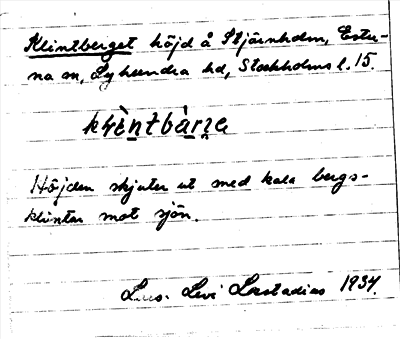 Klintberget höjd å Stjärnholm, Estu-
na sn, Lyhundra hd, Stockholms l. 15.
Höjden skjuter ut med kala bergs-
klintar mot sjön.
Levi Læstadius 1934.